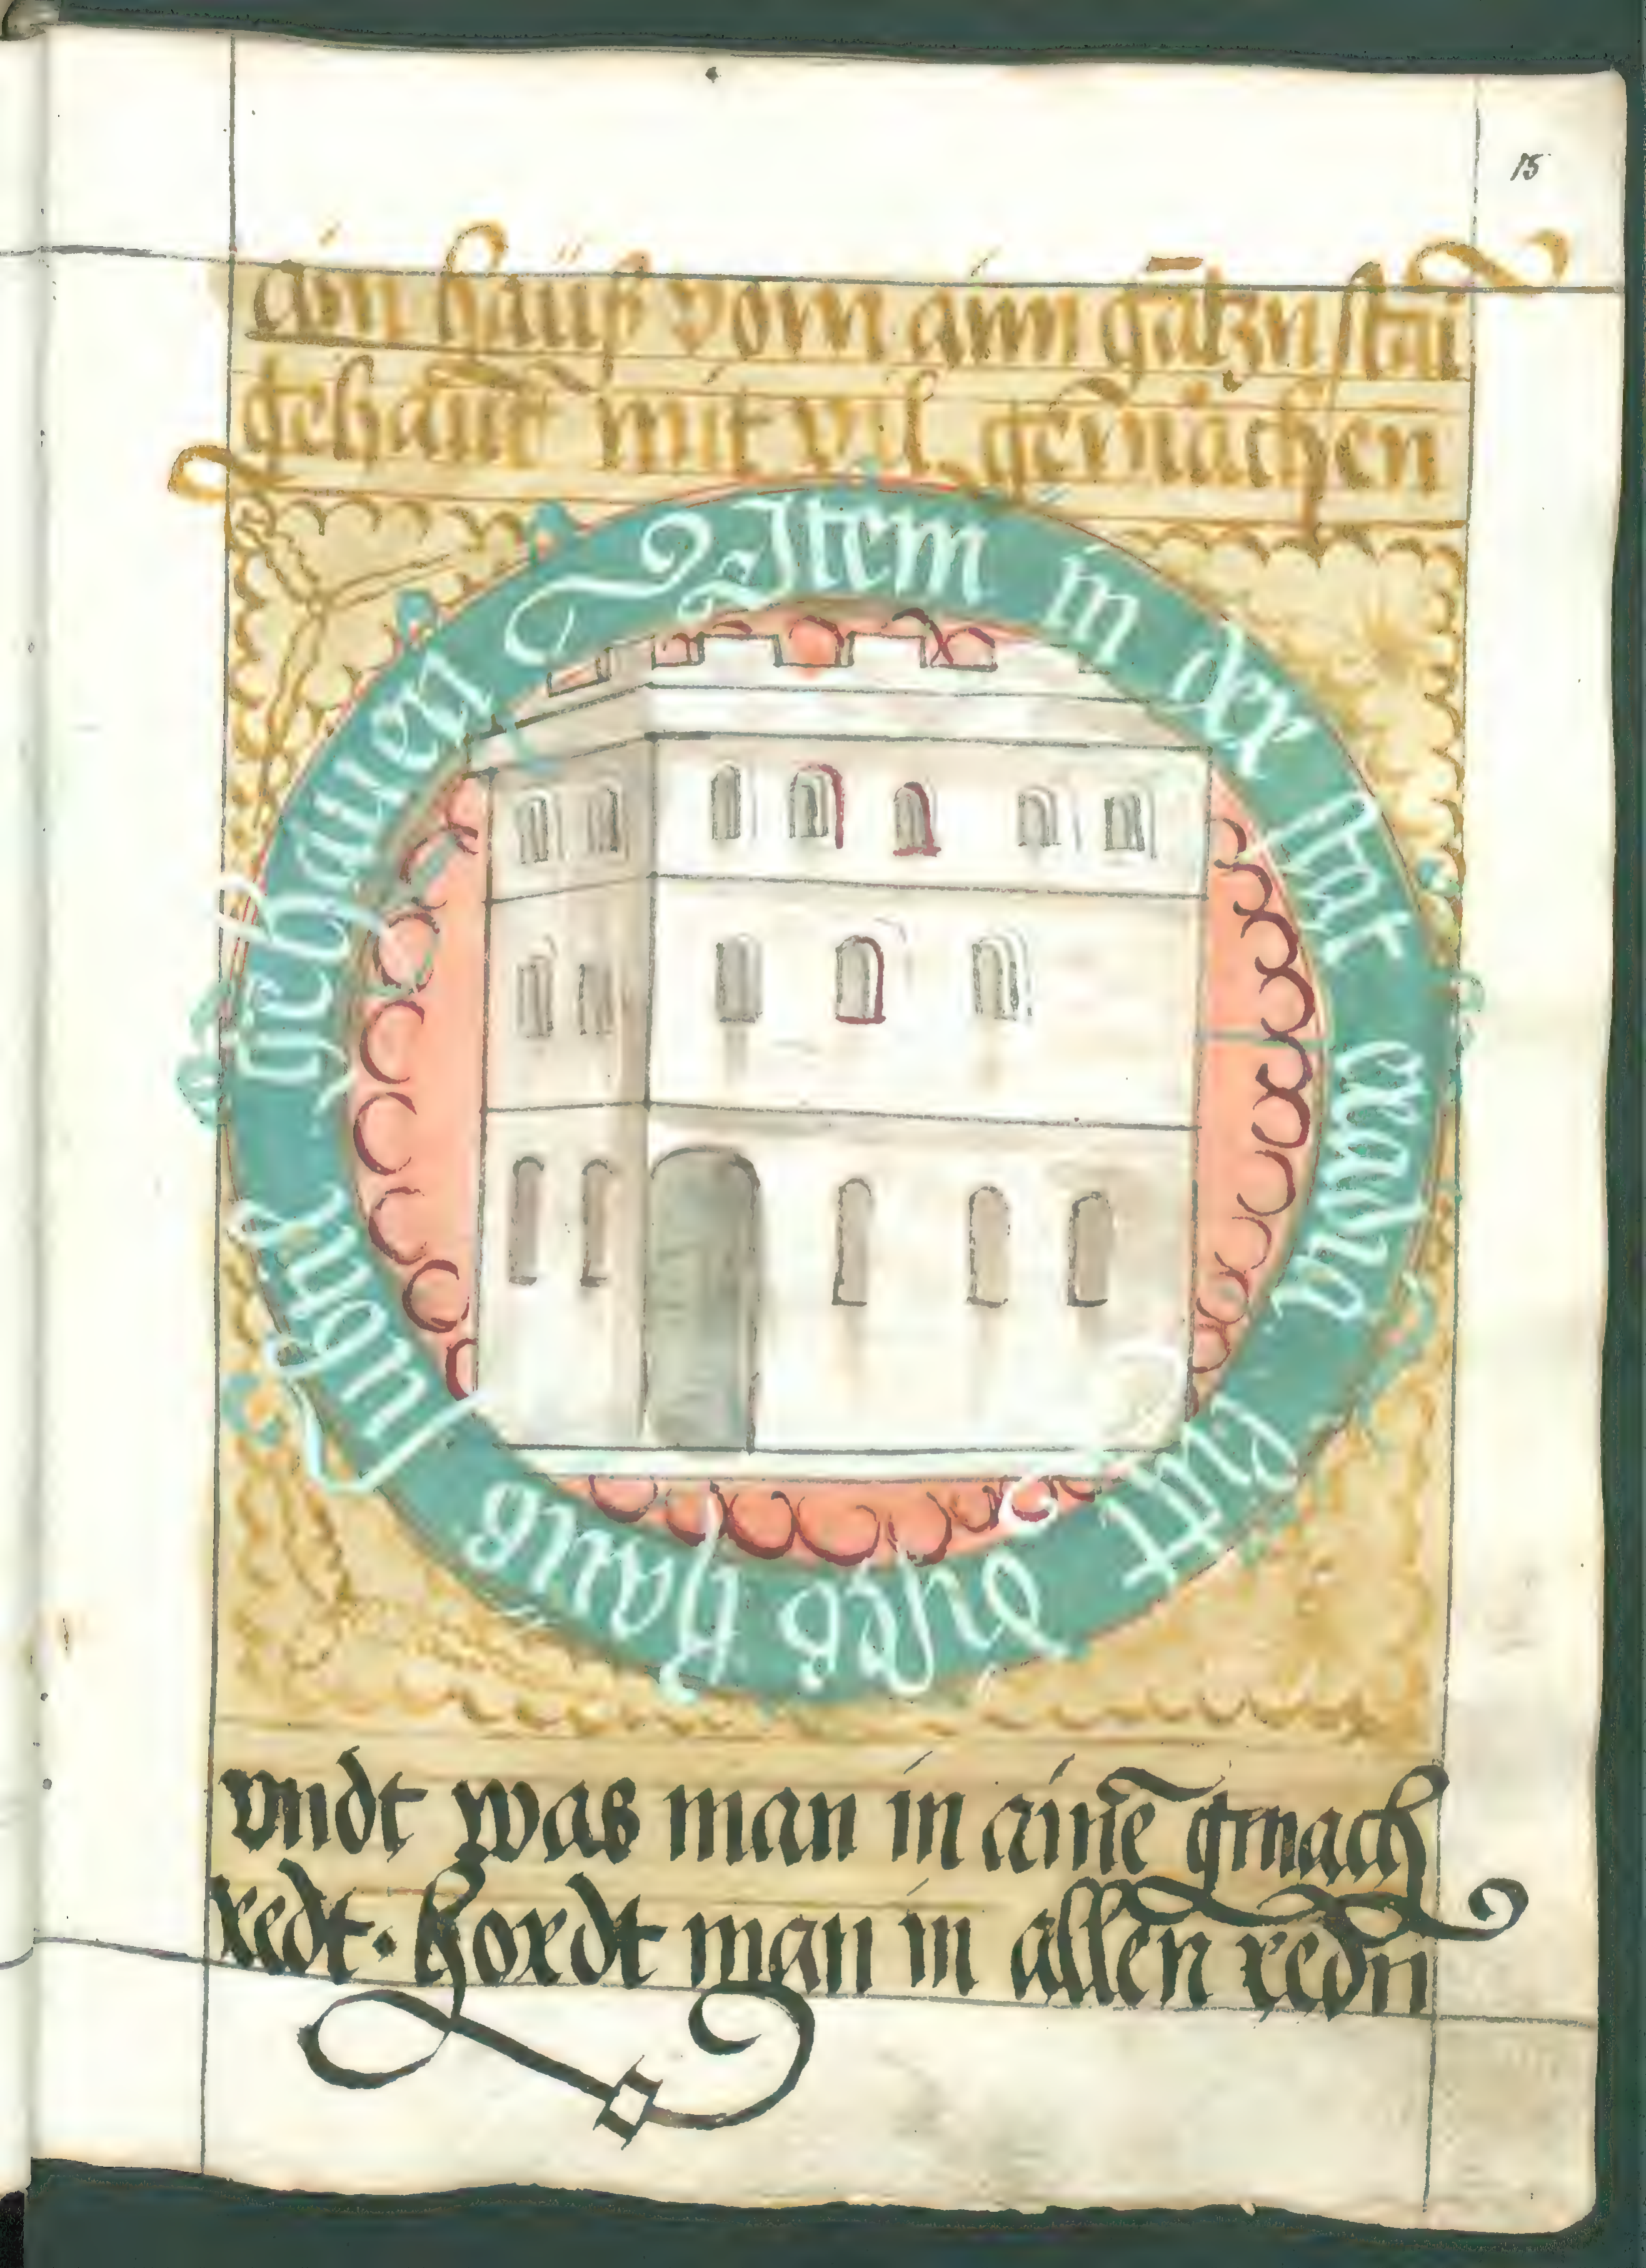 15
ain hauß vom aim gātzn stai
gehauт mit vil gemachen
Item in der stat
dises haus
künig gebauen
vndt was man in ainē gmach
redt · hordt man in allen redn